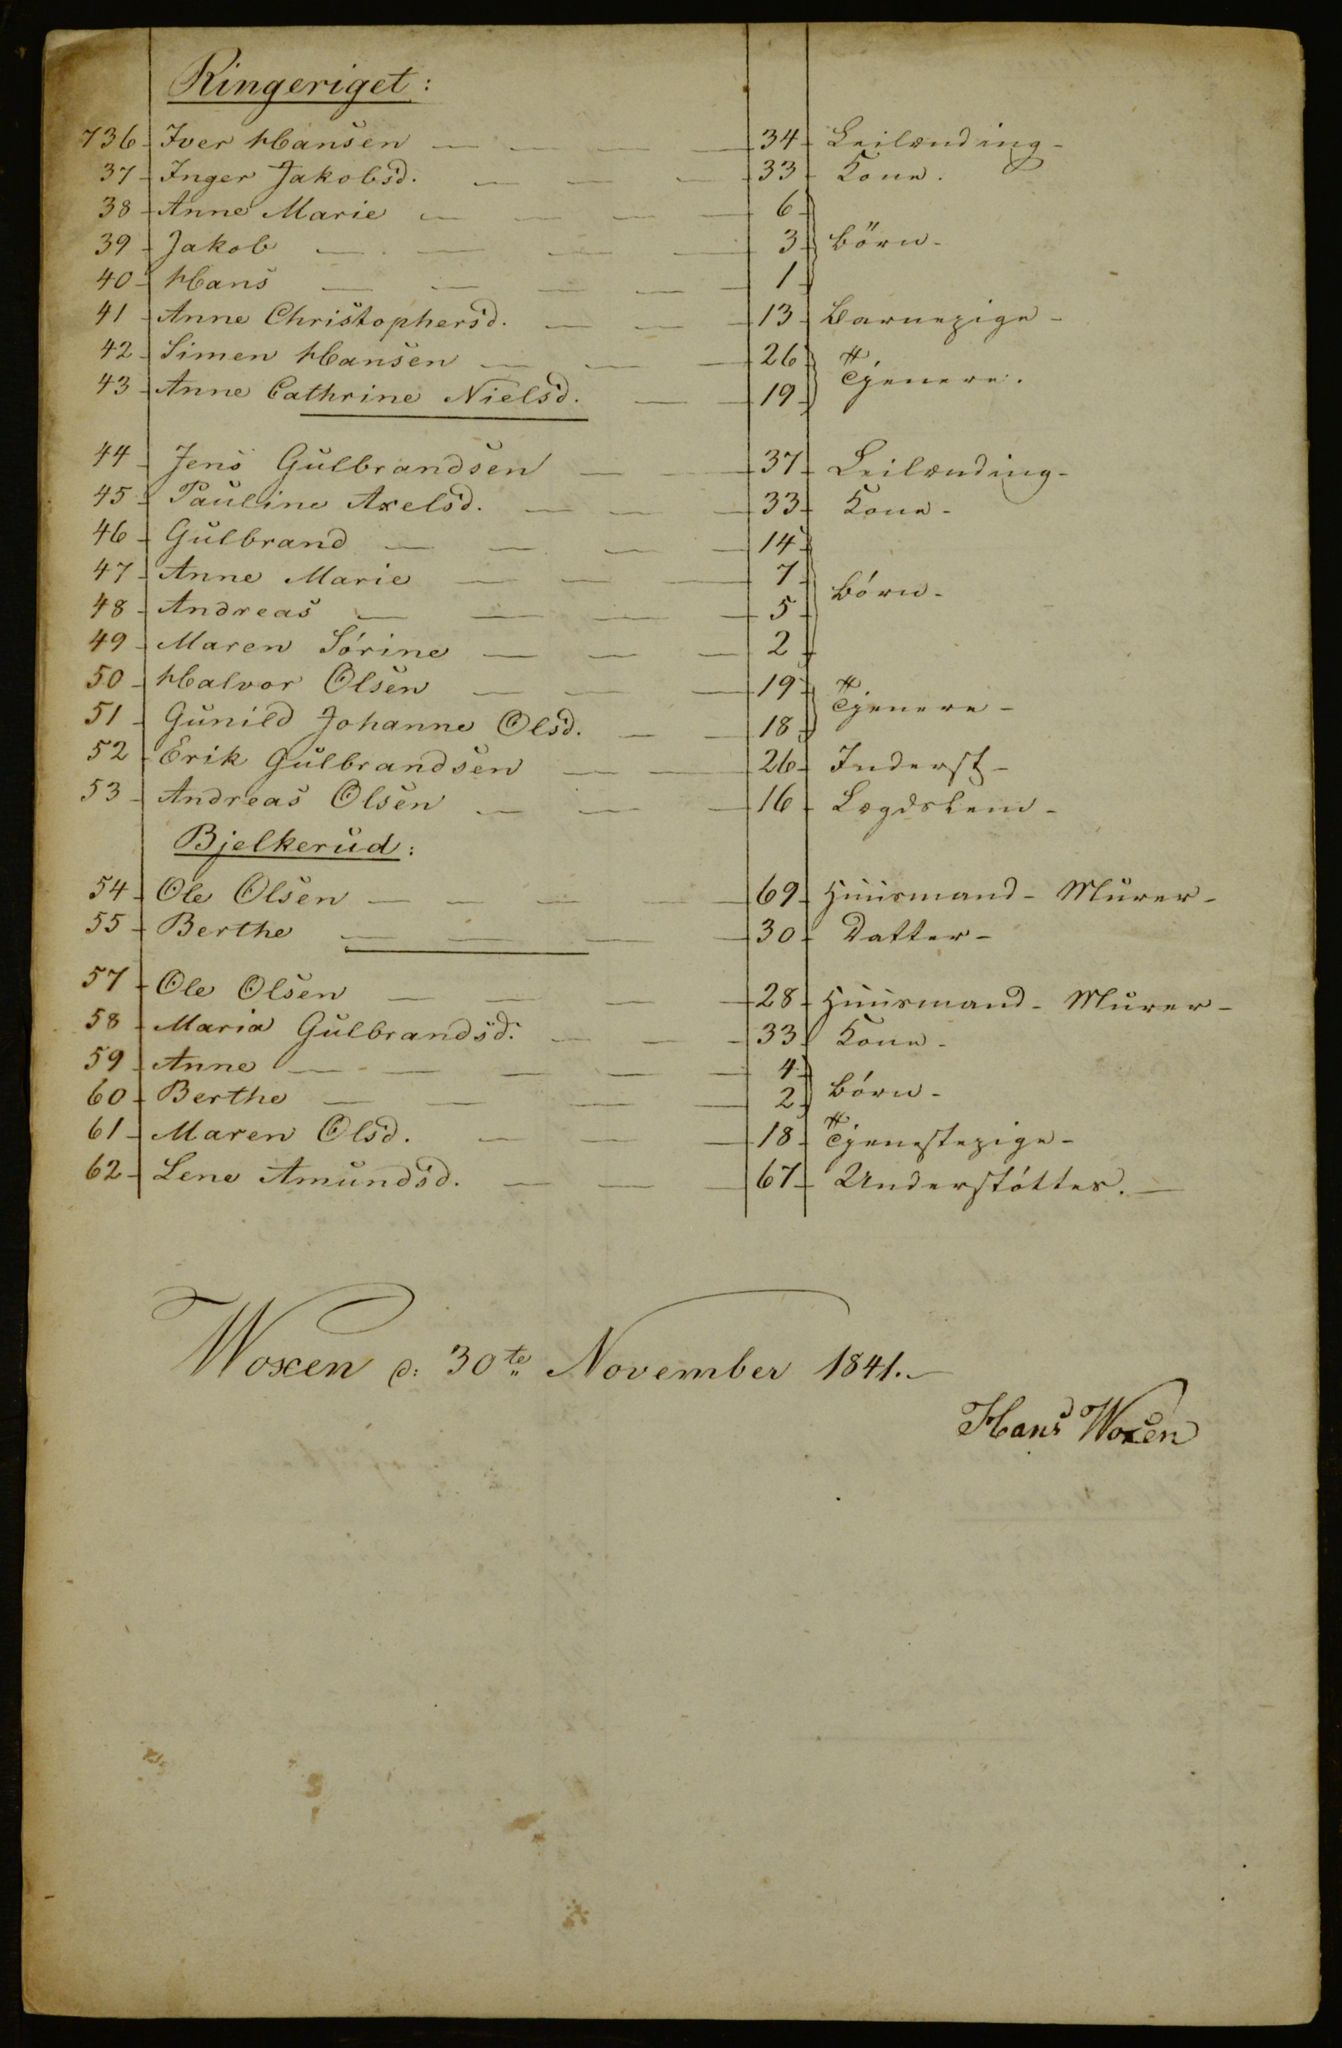 Ringeriget:
736 Iver Hansen — — — — 34 Leilænding-
37 Inger Jakobsd. — — — 33 Kone.
38 Anne Marie — — — — 6
39 Jakob — — — — 3 Börn-
40 Hans — — — — — 1
41 Anne Christophersd. — — — 13 Barnepige-
42 Simen Hansen — — — 26 Tjenere.
43 Anne Cathrine Nielsd. — — 19
44 Jens Gulbrandsen — — 37 Leilænding-
45 Pauline Axelsd. — — — 33 Kone-
46 Gulbrand — — — — 14
47 Anne Marie — — — 7 Börn-
48 Andreas — — — — 5
49 Maren Sórine — — — 2
50 Halvor Olsen — — — 19 Tjenere-
51 Gunild Johanne Olsd. — — 18
52 Erik Gulbrandsen — — 26 Inderst-
53 Andreas Olsen — — — 16 Lægdslem-
Bjelkerud:
54 Ole Olsen — — — — — 69 Huusmand- Murer-
55 Berthe — — — — 30 Datter-
57 Ole Olsen — — — — 28 Huusmand- Murer-
58 Maria Gulbrandsd. — — — 33 Kone-
59 Anne — — — — — 4 Börn-
60 Berthe — — — — 2
61 Maren Olsd. — — — 18 Tjenestepige-
62 Lene Amundsd. — — — 67 Understóttes.—
Woxen d: 30te November 1841.—
Hans Woxen